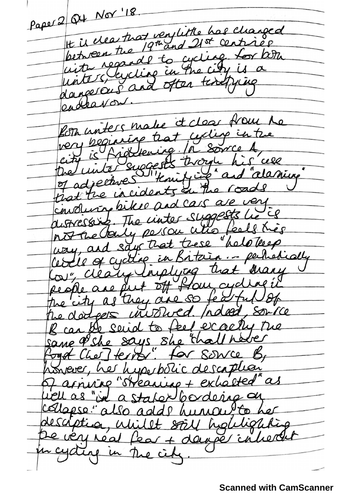 Paper 2 Q4 Nov '18.
It is clear that very little has changed
between the 19th and 21st centuries
with regards to cycling for both
writers, cycling in the city is a
dangerous and often terrifying
endeavour.
Both writers make it clear from the
very beginning that cycling in the
city is frightening. In source A,
the writer suggests through his use
of adjectives "terrifying" and "alarming"
that the incidents on the roads
involving bikes and cars are very
distressing. The writer suggests he is
not the only person who feels this
way, and says that these "help keep
levels of cycling in Britain ... pathetically
low", clearly implying that many
people are put off from cycling in
the city as they are so fearful of
the dangers involved. Indeed, source
B can be said to feel exactly the
same as she says she "shall never
forget [her] terror". For source B,
however, her hyperbolic description
of arriving "streaming + exhausted" as
well as "in a state bordering on
collapse" also adds humour to her
description, whilst still highlighting
the very real fear + danger inherent
in cycling in the city.
Scanned with CamScanner